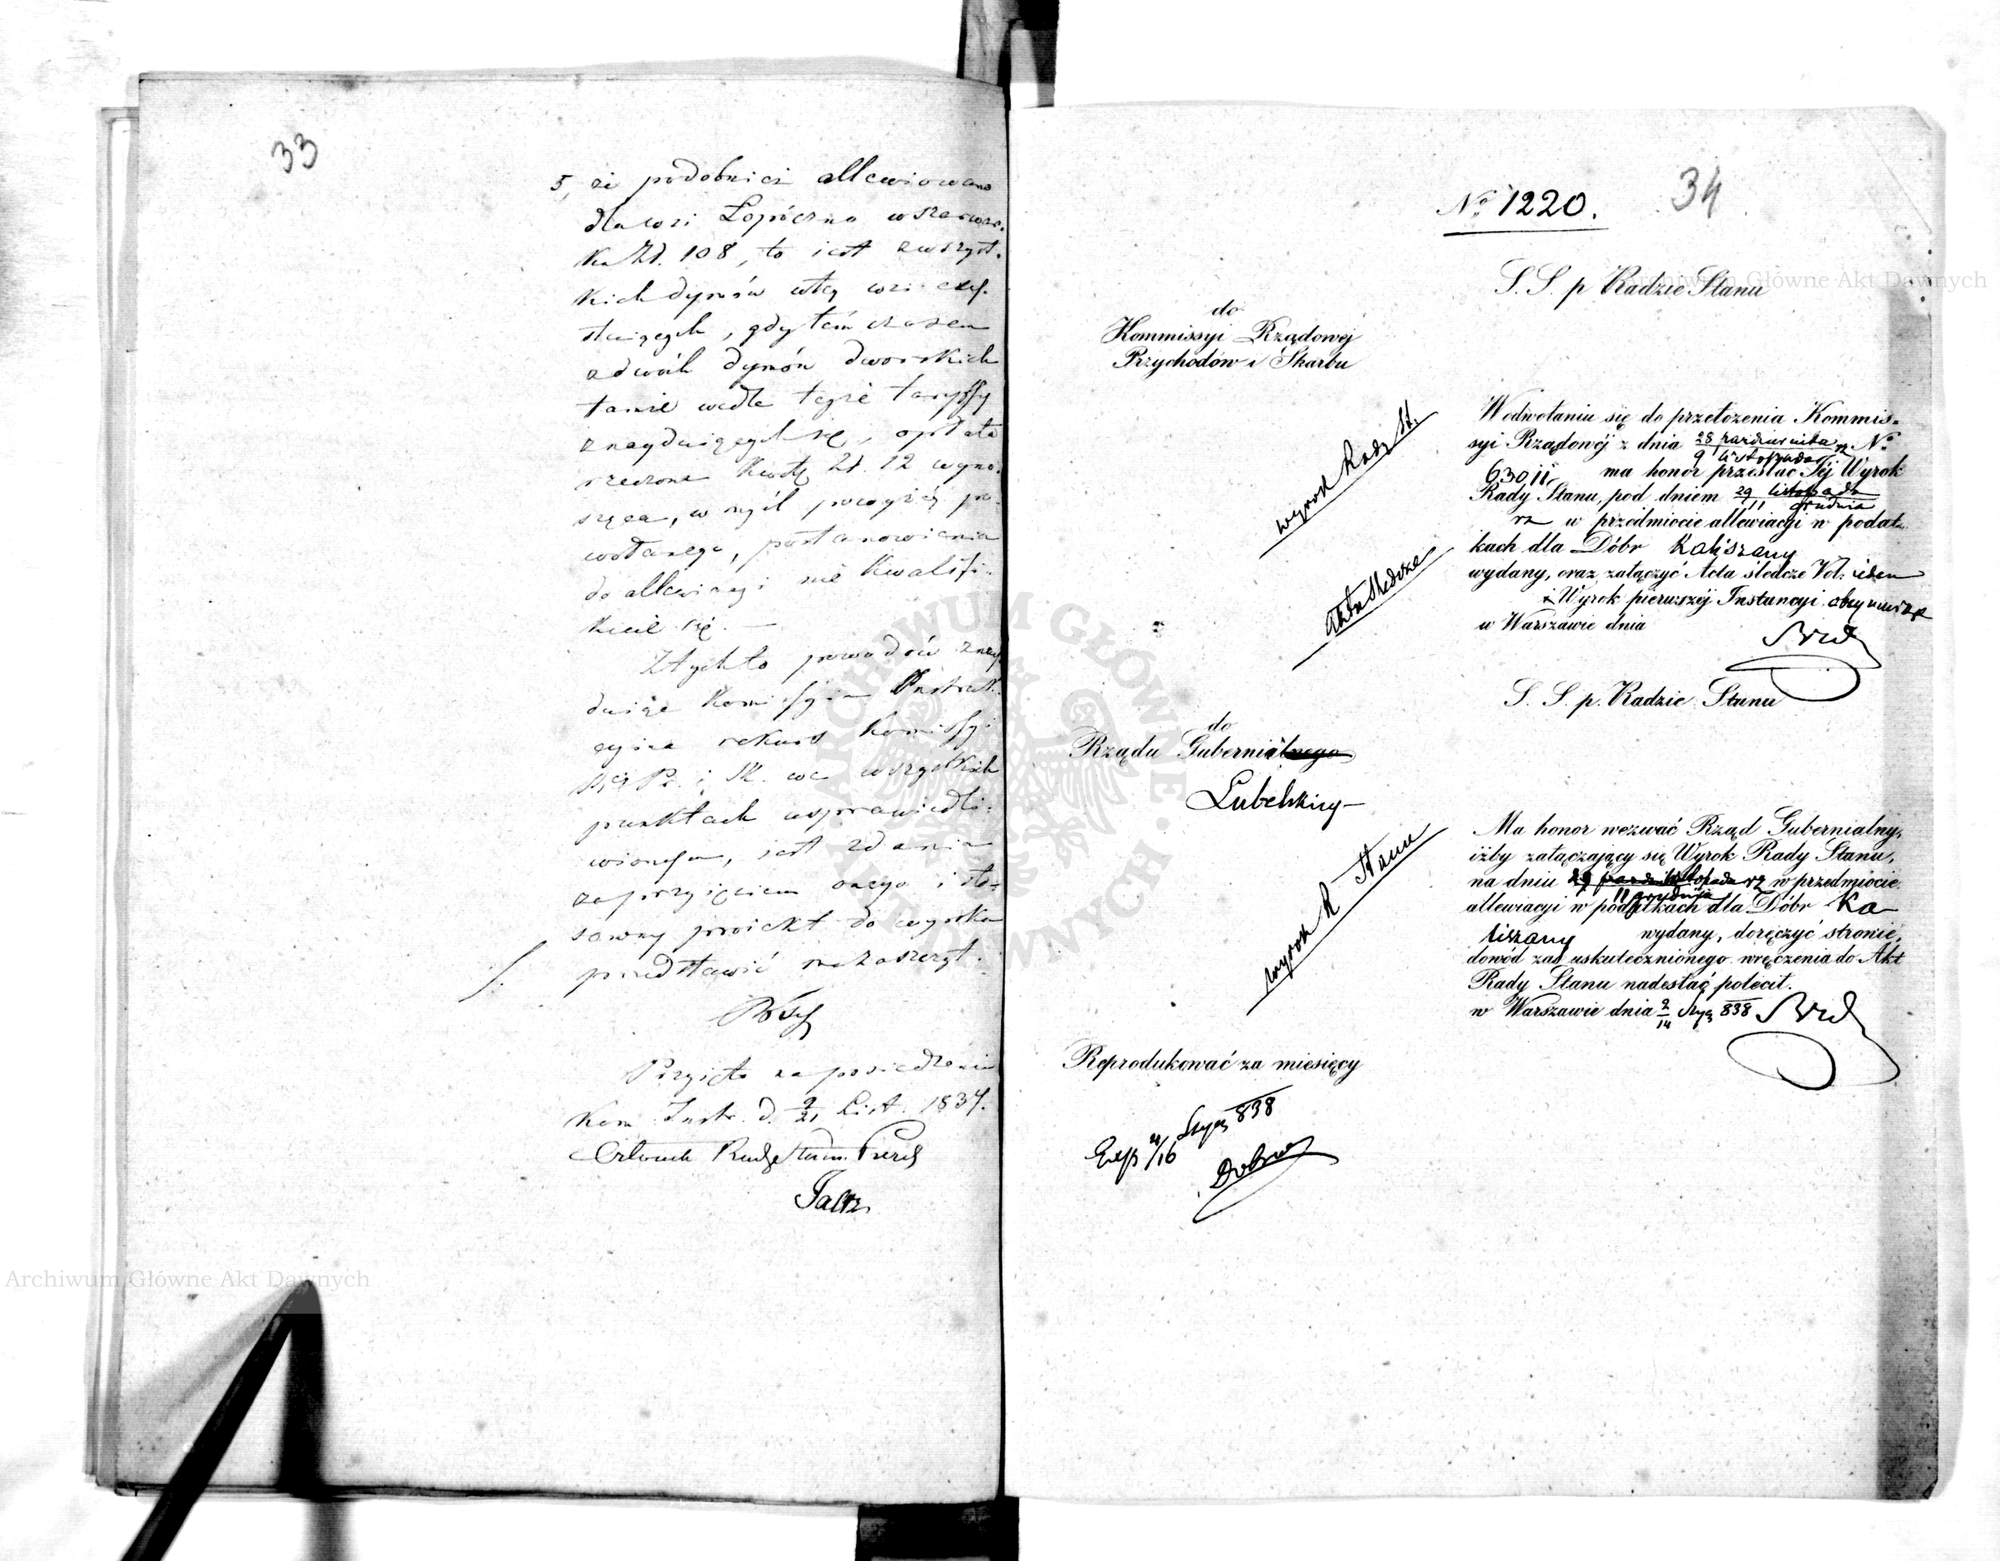 33
5, że podobnież allewiowano
dla wsi Łopiczno w szarwar-
ku Zł. 108, to iest z wszyst-
kich dymów w tej wsi
, gdy tém czasem
z dwóch dymów dworskich
tamże wedle teyże taryffy
znayduiących się, opłata
rzeczona kwotę Zł. 12 wyno-
sząca, w myśl powyżéj po-
wołanego, postanowienia
do allewiacyi nie kwalifi-
kuie się. —
Z tych to powodów znay
duiąc Kommissya Instruk-
cyina rekurs Kommissyi
R. P. i Sk. we wszystkich
punktach usprawiedli-
wionym, iest zdania
za przyięciem onego i sto-
sowny proiekt do wyroku
przedstawić ma zaszczyt.
Przyięto na posiedzeniu
Kom. Instr. d. 9/21 List. 1837.
Członek Rady Stanu Prezes
34
No. 1220.
S. S. p. Radzie Stanu
do
Kommissyi Rządowéj
Przychodów i Skarbu
wyrok Rady St.
Akta śledcze
Wodwołaniu się do przełożenia Kommis-
syi Rządowéj z dnia 28 października / 9 listopada rz No
63011 ma honor przesłać Jéj Wyrok
Rady Stanu, pod dniem 29 listopada / 11 grudnia
rz w przedmiocie allewiacyi w podat-
kach dla Dóbr Kaliszany
wydany, oraz załączyć Acta śledcze Vol: ieden
i Wyrok pierwszéj Instancyi
w Warszawie dnia
S. S. p. Radzie Stanu
do
Rządu Gubernialnego
Lubelskiey
wyrok R Stanu
Ma honor wezwać Rząd Gubernialny,
iżby załączający się Wyrok Rady Stanu,
na dniu 29 listopada rz w przedmiocie
11 grudnia
allewiacyi w podatkach dla Dóbr Ka
liszany wydany, doręczyć stronie,
dowód zaś uskutecznionego wręczenia do Akt
Rady Stanu nadesłać polecił.
w Warszawie dnia 2/14 Stycz 838
Reprodukować za miesięcy
Exp 4/16 Stycz 838
Archiwum Główne Akt Dawnych
Archiwum Główne Akt Dawnych
ARCHIWUM GŁÓWNE AKT DAWNYCH